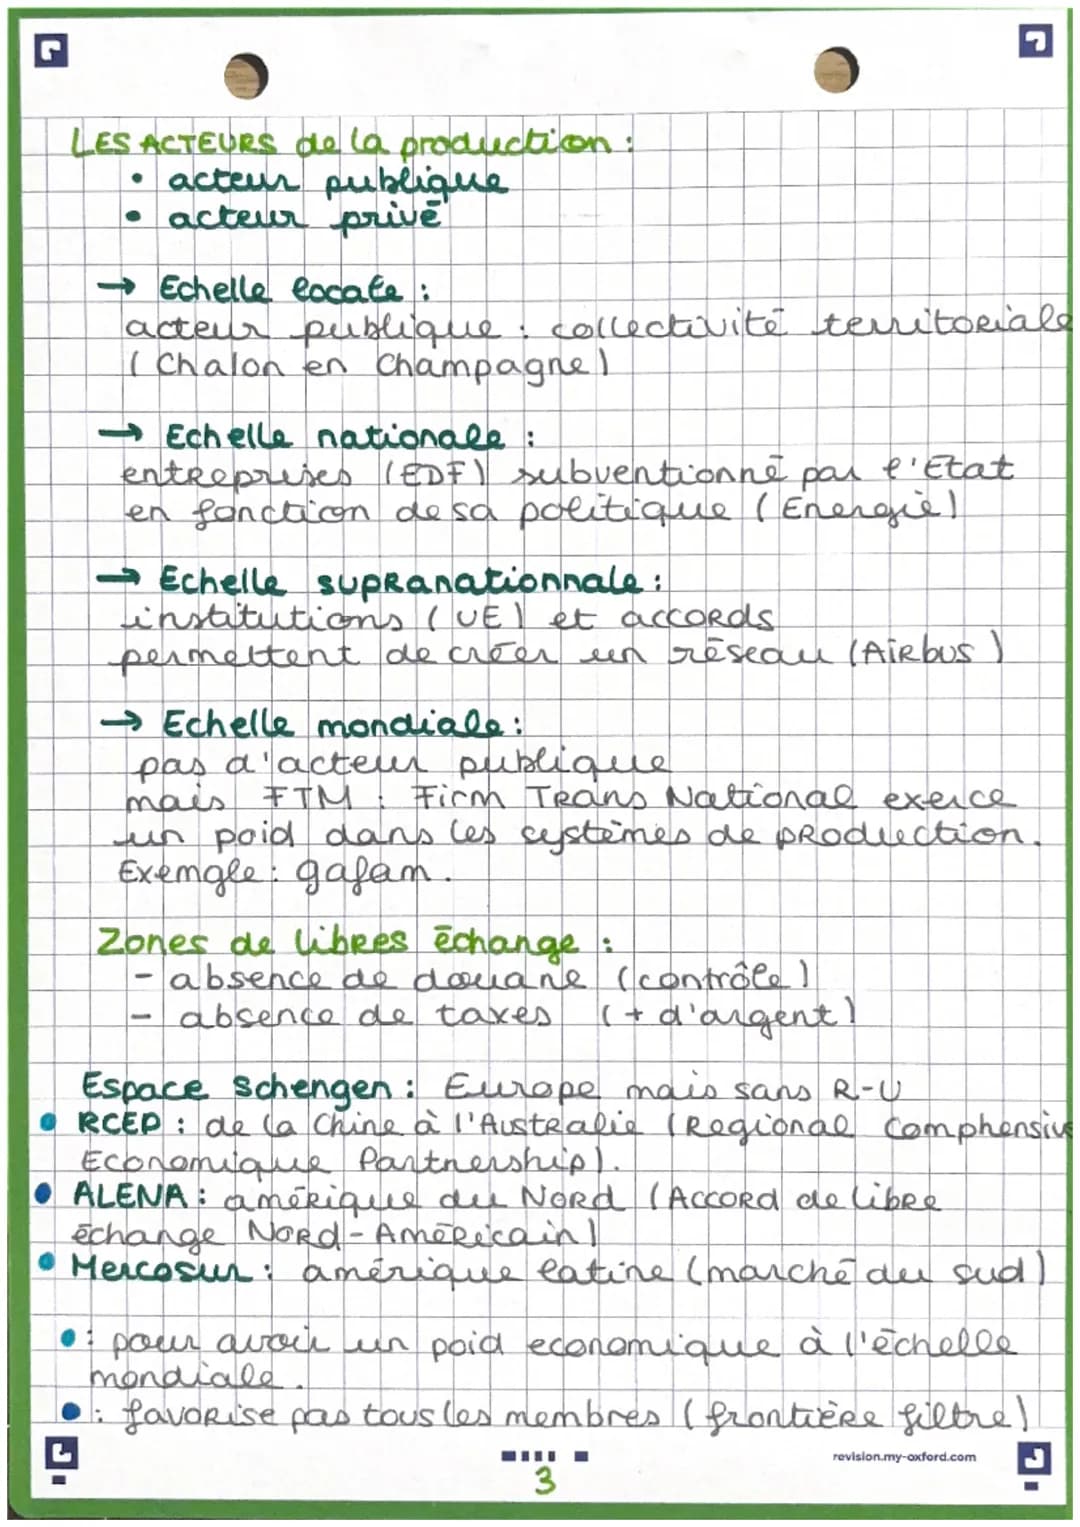 LES ACTEURS de la production :
• acteur publique
• acteur privé
→ Echelle locale :
acteur publique : collectivité territoriale
(Chalon en Champagne)
→ Echelle nationale :
entreprises (EDF) subventionné par l'Etat
en fonction de sa politique (Energie)
→ Echelle supranationnale :
institutions (UE) et accords
permettent de créer un réseau (Airbus)
→ Echelle mondiale :
pas d'acteur publique
mais FTM : Firm Trans National exerce
un poid dans les systèmes de production.
Exemple : gafam.
Zones de libres échange :
- absence de douane (contrôle)
- absence de taxes (+ d'argent)
Espace Schengen : Europe mais sans R-U
• RCEP : de la Chine à l'Australie (Regional Comphensive
Economique Partnership).
• ALENA : amérique du Nord (Accord de libre
échange Nord-Américain)
• Mercosur : amérique latine (marché du sud)
• : pour avoir un poid economique à l'échelle
mondiale.
• : favorise pas tous les membres (frontière filtre)
revision.my-oxford.com
3